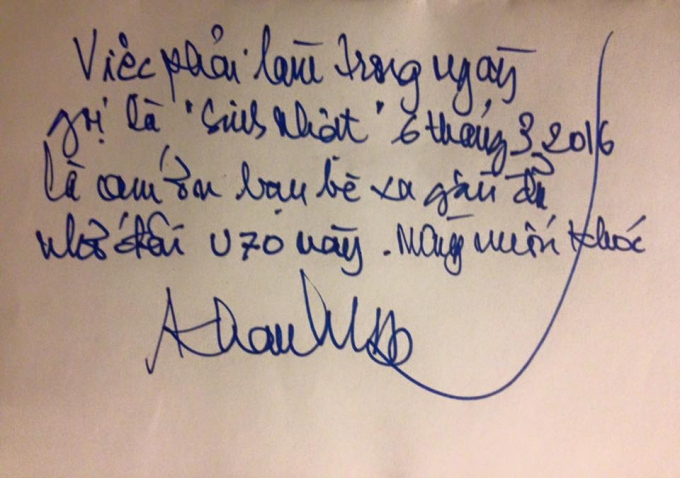 Việc phải làm trong ngày
gọi là "Sinh Nhật" 6 tháng 3 2016
là cảm ơn bạn bè xa gần đã
nhớ đến U70 này. Mừng muốn khóc